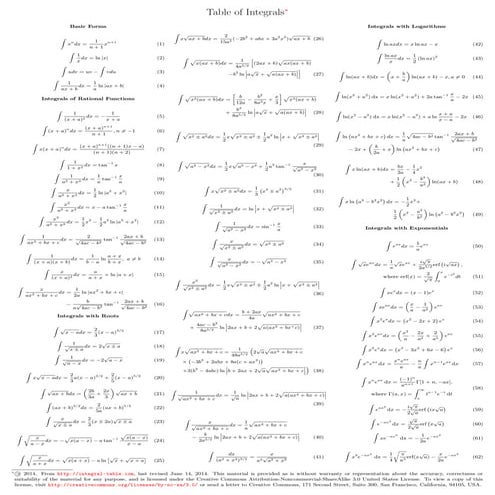 Table of Integrals*
Basic Forms
∫ xⁿ dx = 1/(n+1) xⁿ⁺¹ (1)
∫ 1/x dx = ln |x| (2)
∫ u dv = uv − ∫ v du (3)
∫ 1/(ax + b) dx = 1/a ln |ax + b| (4)
Integrals of Rational Functions
∫ 1/(x + a)² dx = −1/(x + a) (5)
∫ (x + a)ⁿ dx = (x + a)ⁿ⁺¹/(n + 1), n ≠ −1 (6)
∫ x(x + a)ⁿ dx = (x + a)ⁿ⁺¹((n + 1)x − a)/((n + 1)(n + 2)) (7)
∫ 1/(1 + x²) dx = tan⁻¹ x (8)
∫ 1/(a² + x²) dx = 1/a tan⁻¹ x/a (9)
∫ x/(a² + x²) dx = 1/2 ln |a² + x²| (10)
∫ x²/(a² + x²) dx = x − a tan⁻¹ x/a (11)
∫ x³/(a² + x²) dx = 1/2 x² − 1/2 a² ln |a² + x²| (12)
∫ 1/(ax² + bx + c) dx = 2/√(4ac − b²) tan⁻¹ (2ax + b)/√(4ac − b²) (13)
∫ 1/((x + a)(x + b)) dx = 1/(b − a) ln (a + x)/(b + x), a ≠ b (14)
∫ x/(x + a)² dx = a/(a + x) + ln |a + x| (15)
∫ x/(ax² + bx + c) dx = 1/(2a) ln |ax² + bx + c|
− b/(a√(4ac − b²)) tan⁻¹ (2ax + b)/√(4ac − b²) (16)
Integrals with Roots
∫ √(x − a) dx = 2/3 (x − a)³ᐟ² (17)
∫ 1/√(x ± a) dx = 2√(x ± a) (18)
∫ 1/√(a − x) dx = −2√(a − x) (19)
(20)
∫ √(ax + b) dx = (2b/(3a) + 2x/3) √(ax + b) (21)
∫ (ax + b)³ᐟ² dx = 2/(5a) (ax + b)⁵ᐟ² (22)
∫ x/√(x ± a) dx = 2/3 (x ∓ 2a)√(x ± a) (23)
∫ √(x/(a − x)) dx = −√(x(a − x)) − a tan⁻¹ √(x(a − x))/(x − a) (24)
∫ √(x/(a + x)) dx = √(x(a + x)) − a ln [√x + √(x + a)] (25)
∫ x√(ax + b) dx = 2/(15a²) (−2b² + abx + 3a²x²)√(ax + b) (26)
∫ √(x(ax + b)) dx = 1/(4a³ᐟ²) [(2ax + b)√(ax(ax + b))
−b² ln |a√x + √(a(ax + b))|] (27)
∫ √(x³(ax + b)) dx = [b/(12a) − b²/(8a²x) + x/3] √(x³(ax + b))
+ b³/(8a⁵ᐟ²) ln |a√x + √(a(ax + b))| (28)
∫ √(x² ± a²) dx = 1/2 x√(x² ± a²) ± 1/2 a² ln |x + √(x² ± a²)|
(29)
∫ √(a² − x²) dx = 1/2 x√(a² − x²) + 1/2 a² tan⁻¹ x/√(a² − x²)
(30)
∫ x√(x² ± a²) dx = 1/3 (x² ± a²)³ᐟ² (31)
∫ 1/√(x² ± a²) dx = ln |x + √(x² ± a²)| (32)
∫ 1/√(a² − x²) dx = sin⁻¹ x/a (33)
∫ x/√(x² ± a²) dx = √(x² ± a²) (34)
∫ x/√(a² − x²) dx = −√(a² − x²) (35)
∫ x²/√(x² ± a²) dx = 1/2 x√(x² ± a²) ∓ 1/2 a² ln |x + √(x² ± a²)|
(36)
∫ √(ax² + bx + c) dx = (b + 2ax)/(4a) √(ax² + bx + c)
+ (4ac − b²)/(8a³ᐟ²) ln |2ax + b + 2√(a(ax² + bx + c))| (37)
(38)
∫ 1/√(ax² + bx + c) dx = 1/√a ln |2ax + b + 2√(a(ax² + bx + c))|
(39)
∫ x/√(ax² + bx + c) dx = 1/a √(ax² + bx + c)
− b/(2a³ᐟ²) ln |2ax + b + 2√(a(ax² + bx + c))| (40)
∫ dx/(a² + x²)³ᐟ² = x/(a²√(a² + x²)) (41)
Integrals with Logarithms
∫ ln ax dx = x ln ax − x (42)
∫ ln ax/x dx = 1/2 (ln ax)² (43)
∫ ln(ax + b) dx = (x + b/a) ln(ax + b) − x, a ≠ 0 (44)
∫ ln(x² + a²) dx = x ln(x² + a²) + 2a tan⁻¹ x/a − 2x (45)
∫ ln(x² − a²) dx = x ln(x² − a²) + a ln (x + a)/(x − a) − 2x (46)
∫ ln (ax² + bx + c) dx = 1/a √(4ac − b²) tan⁻¹ (2ax + b)/√(4ac − b²)
− 2x + (b/(2a) + x) ln (ax² + bx + c) (47)
∫ x ln(ax + b) dx = bx/(2a) − 1/4 x²
+ 1/2 (x² − b²/a²) ln(ax + b) (48)
∫ x ln (a² − b²x²) dx = −1/2 x² +
1/2 (x² − a²/b²) ln (a² − b²x²) (49)
Integrals with Exponentials
∫ eᵃˣ dx = 1/a eᵃˣ (50)
∫ √x eᵃˣ dx = 1/a √x eᵃˣ + i√π/(2a³ᐟ²) erf (i√(ax)),
where erf(x) = 2/√π ∫₀ˣ e^(−t²) dt (51)
∫ xeˣ dx = (x − 1)eˣ (52)
∫ xeᵃˣ dx = (x/a − 1/a²) eᵃˣ (53)
∫ x²eˣ dx = (x² − 2x + 2) eˣ (54)
∫ x²eᵃˣ dx = (x²/a − 2x/a² + 2/a³) eᵃˣ (55)
∫ x³eˣ dx = (x³ − 3x² + 6x − 6) eˣ (56)
∫ xⁿeᵃˣ dx = xⁿeᵃˣ/a − n/a ∫ xⁿ⁻¹eᵃˣ dx (57)
∫ xⁿeᵃˣ dx = (−1)ⁿ/aⁿ⁺¹ Γ[1 + n, −ax],
where Γ(a, x) = ∫ₓ^∞ tᵃ⁻¹e⁻ᵗ dt (58)
∫ e^(ax²) dx = −i√π/(2√a) erf (ix√a) (59)
∫ e^(−ax²) dx = √π/(2√a) erf (x√a) (60)
∫ xe^(−ax²) dx = −1/(2a) e^(−ax²) (61)
(62)
*© 2014. From http://integral-table.com, last revised June 14, 2014. This material is provided as is without warranty or representation about the accuracy, correctness or
suitability of the material for any purpose, and is licensed under the Creative Commons Attribution-Noncommercial-ShareAlike 3.0 United States License. To view a copy of this
license, visit http://creativecommons.org/licenses/by-nc-sa/3.0/ or send a letter to Creative Commons, 171 Second Street, Suite 300, San Francisco, California, 94105, USA.